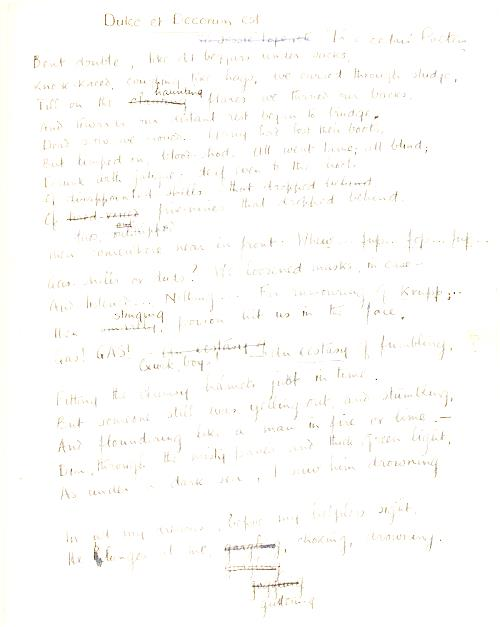 Dulce et Decorum est.
To a certain Poetess
Bent double, like old beggars under sacks,
Knock-kneed, coughing like hags, we cursed through sludge,
haunting
Till on the clawing flares we turned our backs.
And towards our distant rest began to trudge.
Dead slow we moved. Many had lost their boots,
But limped on, blood-shod. All went lame; all blind;
Drunk with fatigue; deaf even to the hoots
Of disappointed shells that dropped behind.
Of five-nines that dropped behind.
out
two, outstripped
men somewhere near in front: Whew... fup... fop... fup...
Gas-shells or duds? We loosened masks, in case—
And listened... Nothing... Far rumouring of Krupp;..
stinging
Then smartly, poison hit us in the face.
Gas! GAS! An ecstasy of An ecstasy of fumbling,
Quick, boys!
Fitting the clumsy helmets just in time.
But someone still was yelling out, and stumbling,
And floundering like a man in fire or lime.—
Dim, through the misty panes and thick green light,
As under a dark sea, I saw him drowning
In all my dreams, before my helpless sight,
He plunges at me, gargling, choking, drowning.
guttering